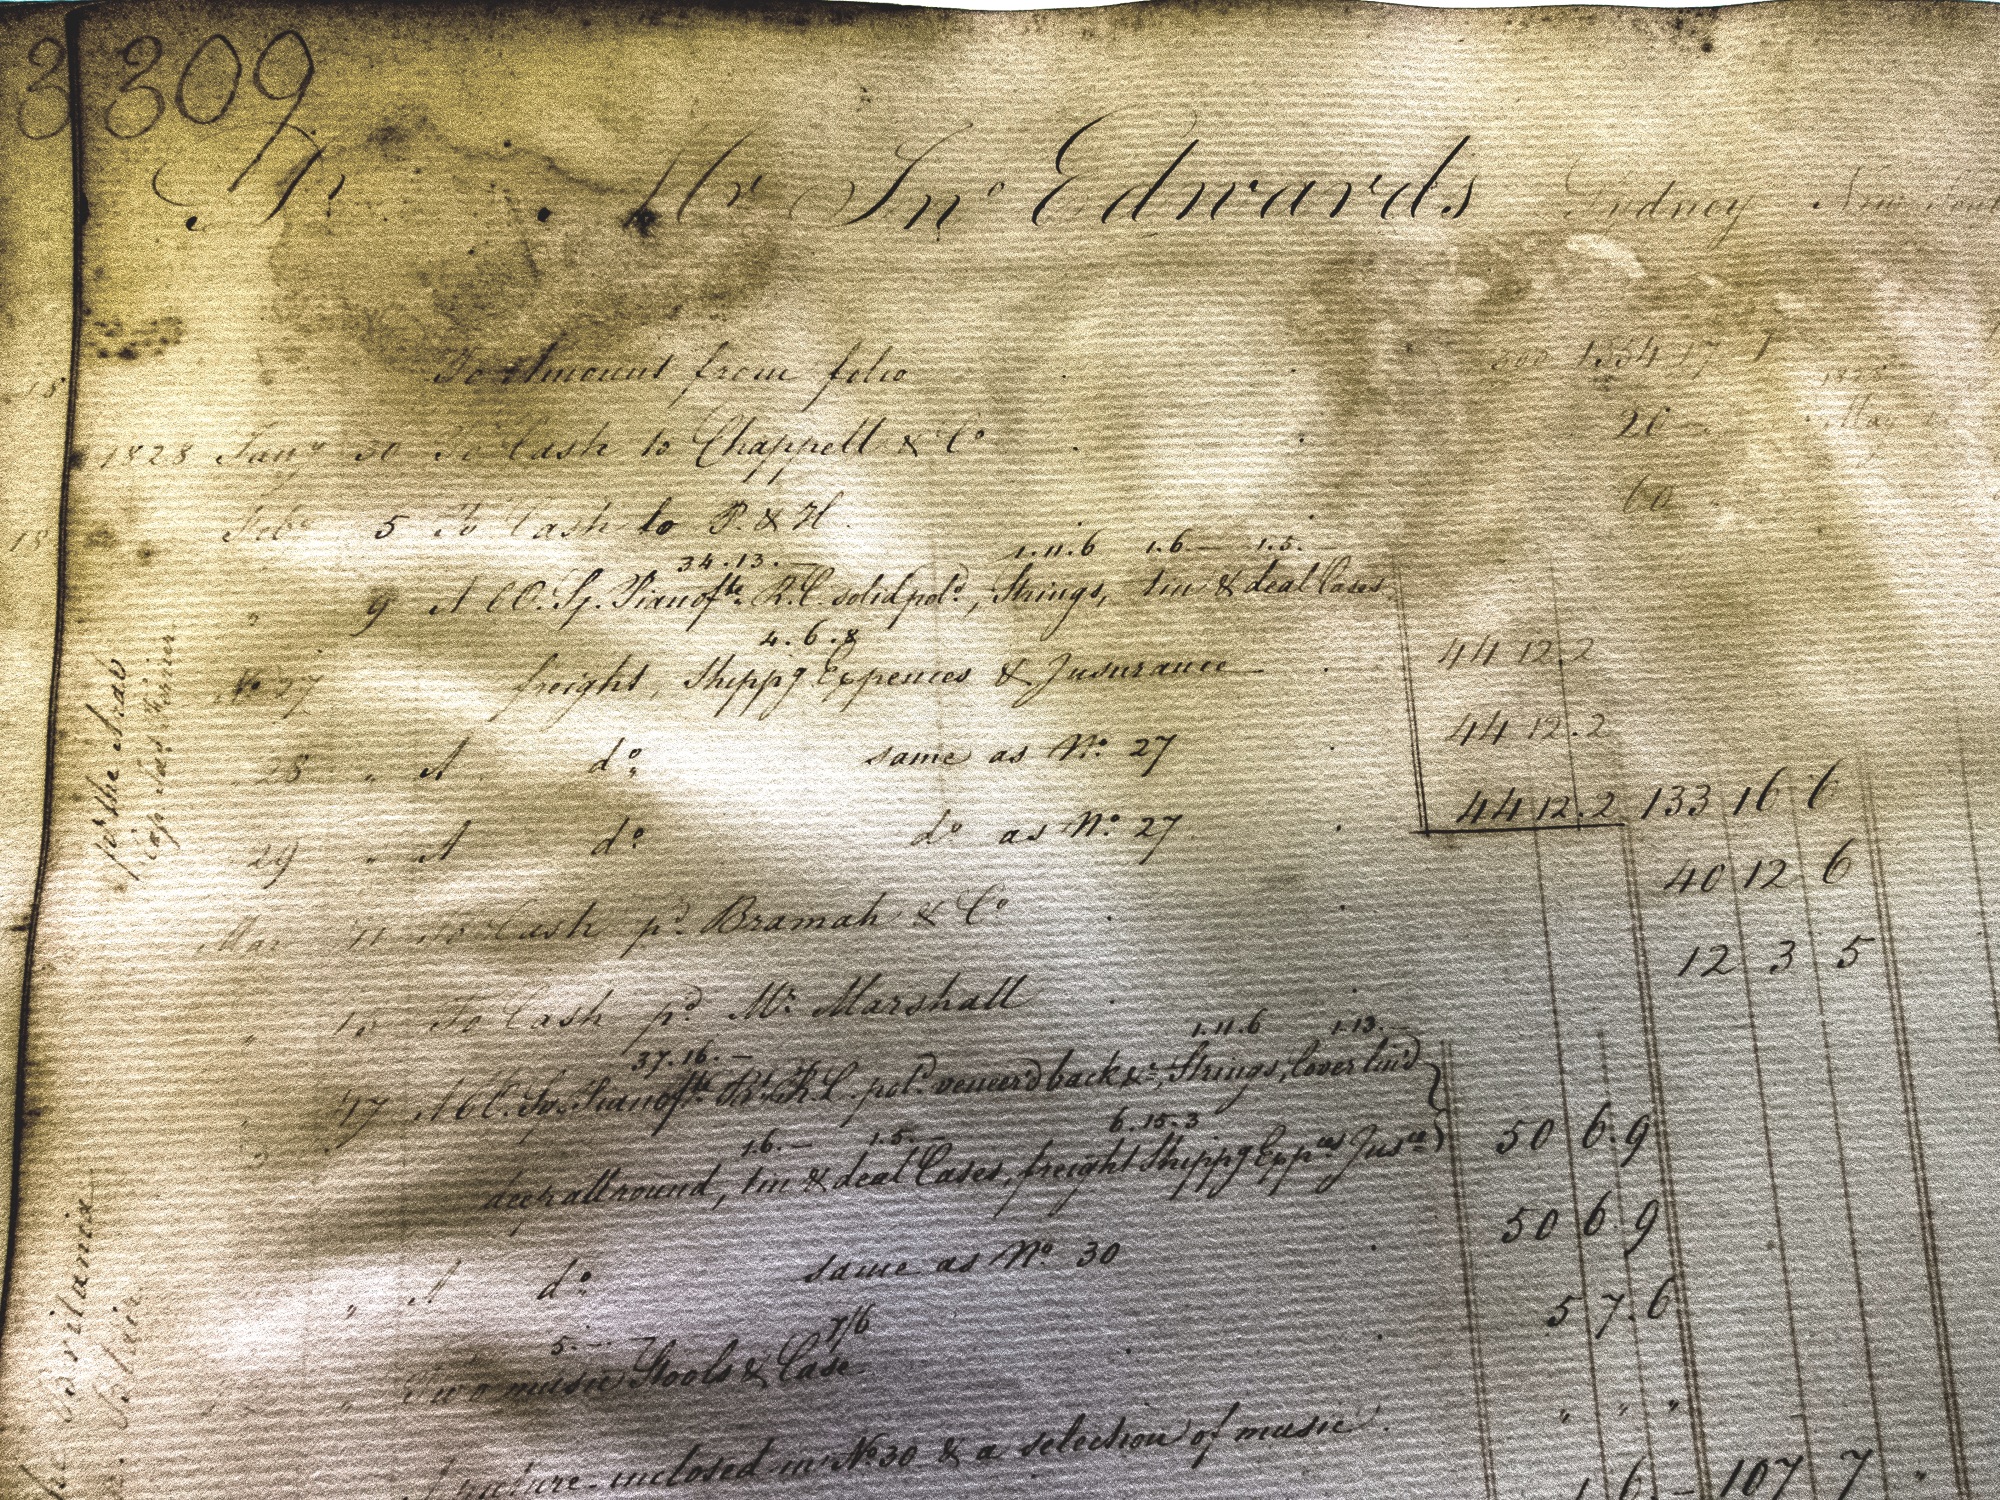 3309
Mr Jno Edwards Sydney New
To Amount from folio . . 300 1554 17 1
1828 Jany 30 To Cash to Chappell & Co . . 20 -
Feby 5 To Cash to P. & H. . . 60
34.13.— 1.11.6 1.6.— 1.5.—
" 9 A CC. Sq. Pianofte R.C. solid pold, Strings, tin & deal Cases
4.6.8
No 27 freight, Shippg Expences & Insurance . 44 12.2
28 " A do same as No. 27 . 44 12.2
29 " A do do as No. 27 . 44 12.2 133 16 6
Mar 11 To Cash pd Bramah & Co . . 40 12 6
" 15 To Cash pd Mr Marshall . . 12 3 5
37.16.— 1.11.6 1.13.—
" 17 A CC. Sq. Pianofte R.C. pold veneer'd back &c, Strings, Cover lin'd
1.6.— 1.5.— 6.15.3
deep all round, tin & deal Cases, freight Shippg Expces Insce 50 6.9
" A do same as No. 30 . 50 6.9
5.— 7/6
" Two music Stools & Case . . 5 7.6
inclosed in No 30 & a selection of music . " " "
1 6.— 107 7 "
18
18
pr the Arab
Capt Jas Ferrier
Britania
Blair
1828
May